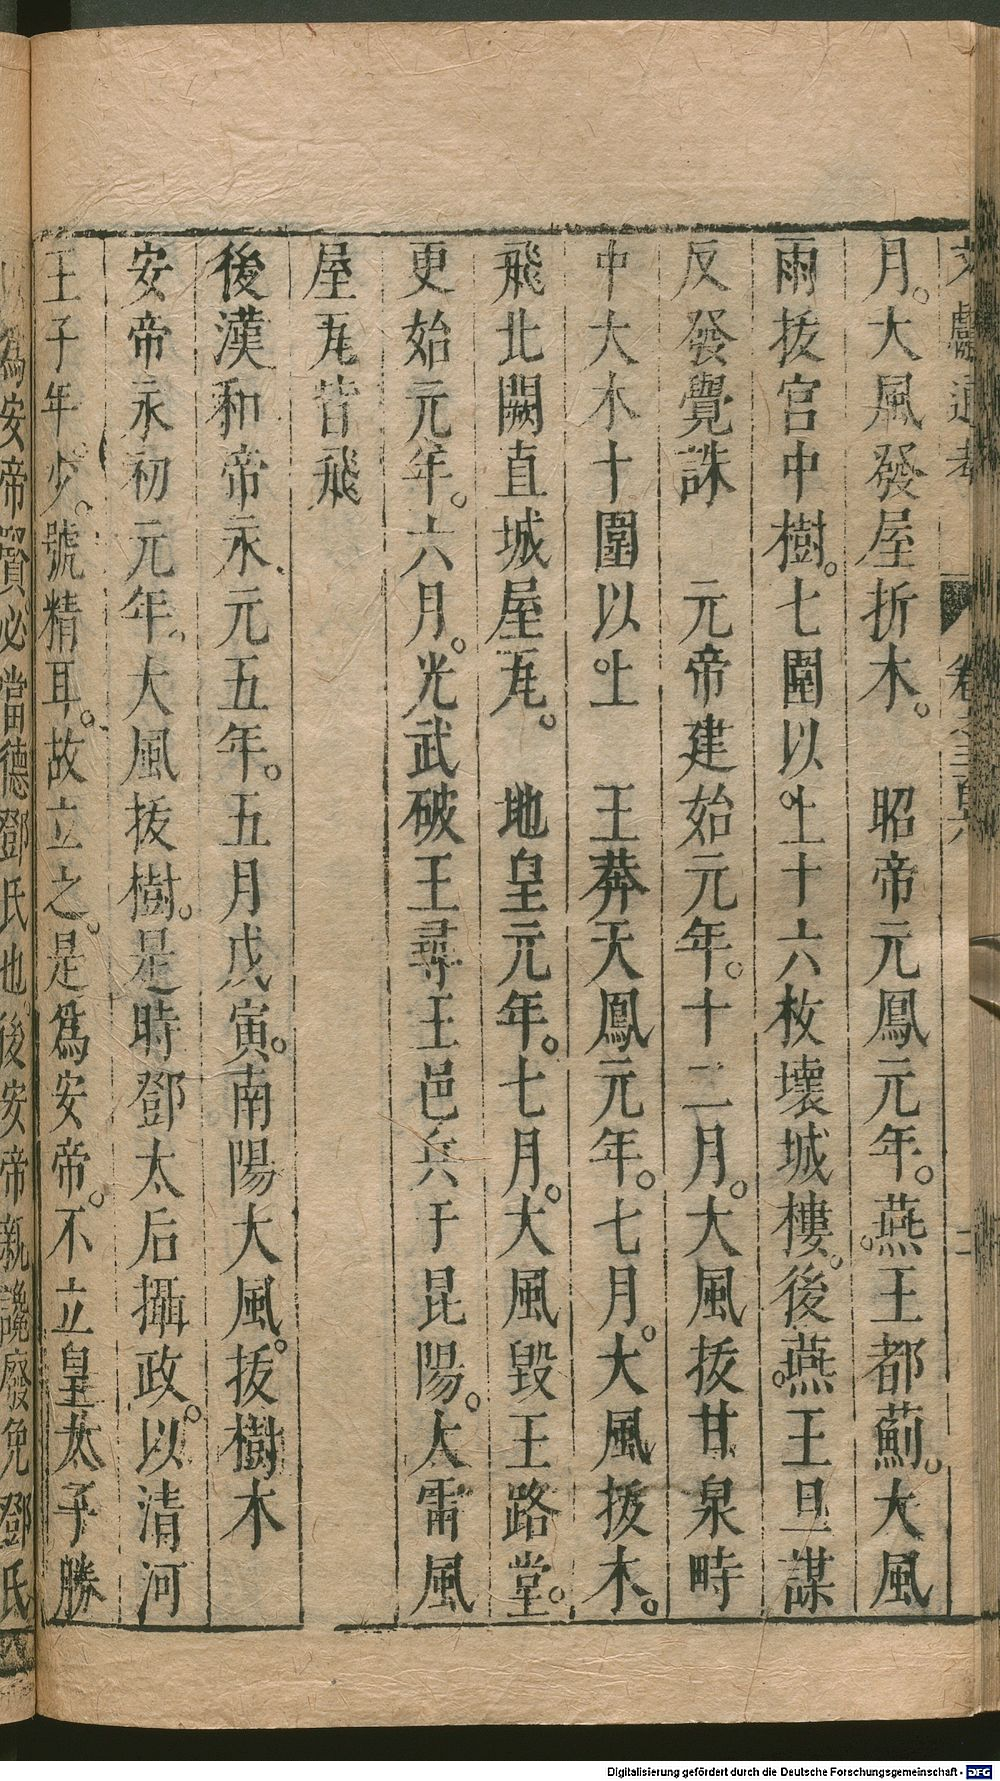 文獻通考 卷之三百六 二
月大風發屋折木 昭帝元鳳元年燕王都薊大風
雨拔宮中樹七圍以上十六枚壞城樓後燕王旦謀
反發覺誅 元帝建始元年十二月大風拔甘泉畤
中大木十圍以上 王莽天鳳元年七月大風拔木
飛北闕直城屋瓦 地皇元年七月大風毀王路堂
更始元年六月光武破王尋王邑兵于昆陽大雷風
屋瓦皆飛
後漢和帝永元五年五月戊寅南陽大風拔樹木
安帝永初元年大風拔樹是時鄧太后攝政以清河
王子年少號精耳故立之是爲安帝不立皇太子勝
以爲安帝賢必當德鄧氏也後安帝親讒廢免鄧氏
Digitalisierung gefördert durch die Deutsche Forschungsgemeinschaft - DFG